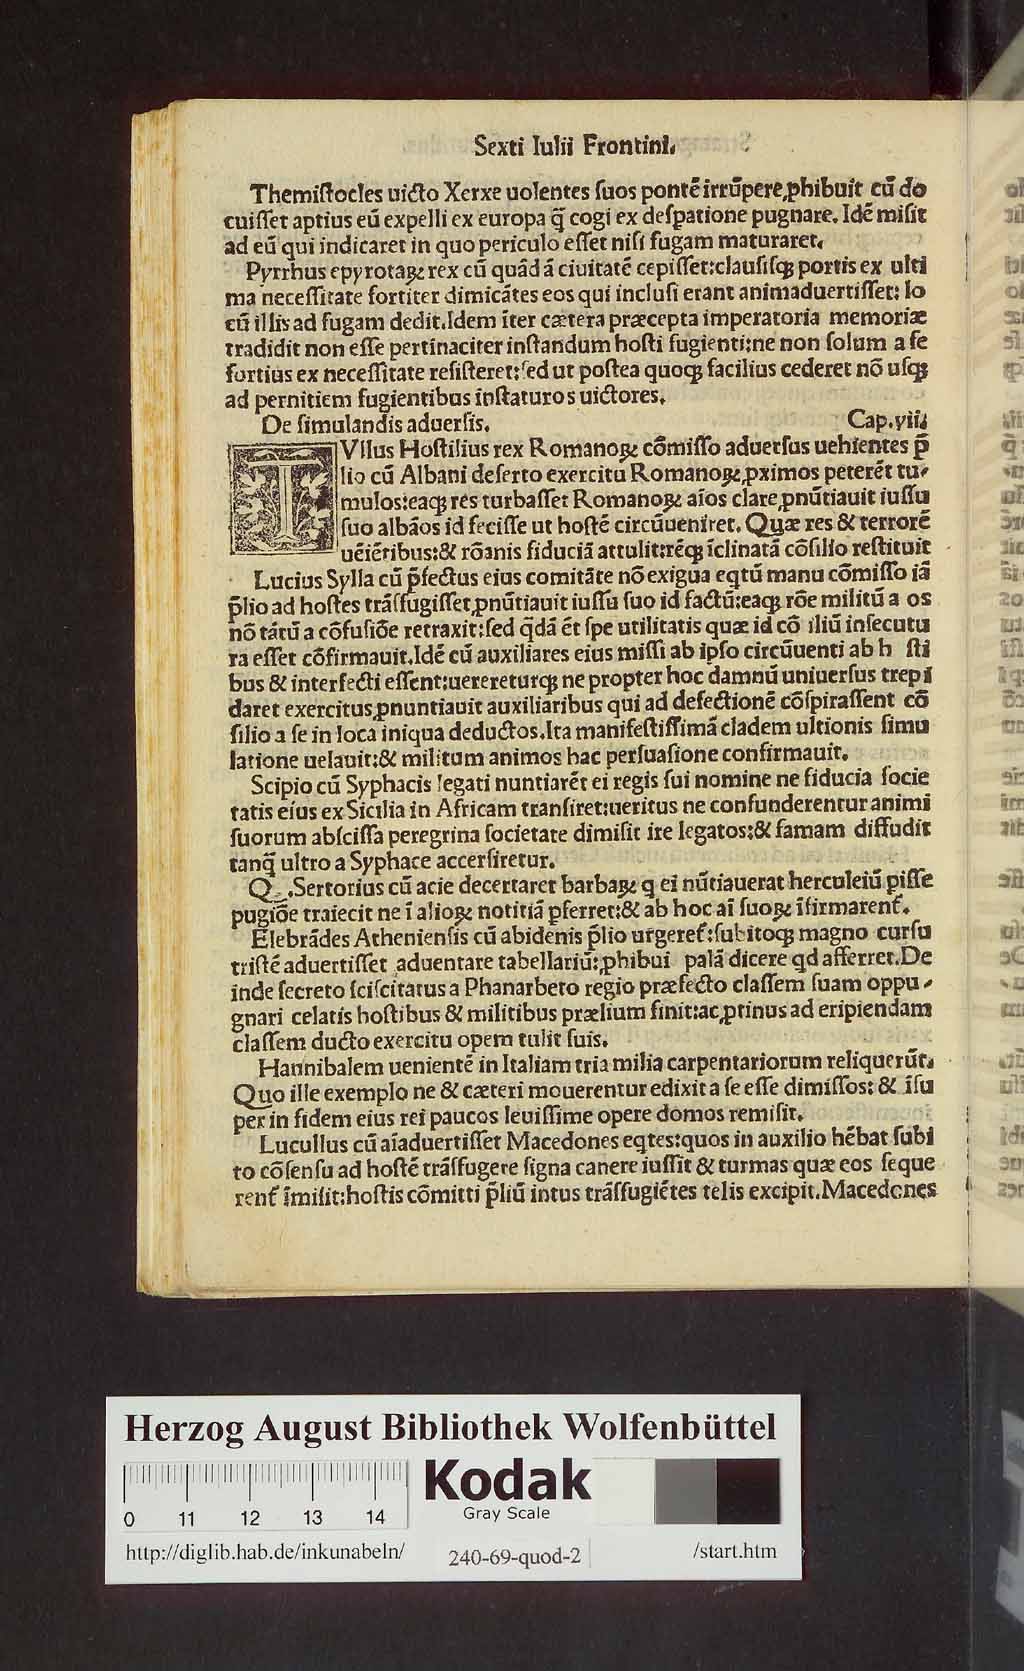 Sexti Iulii Frontini.
Themiſtocles uicto Xerxe uolentes ſuos pontē irrūpere ꝓhibuit cū do
cuiſſet aptius eū expelli ex europa q̄ cogi ex deſpatione pugnare. Idē miſit
ad eū qui indicaret in quo periculo eſſet niſi fugam maturaret.
Pyrrhus epyrotaꝝ rex cū quādā ciuitatē cepiſſet:clauſiſqꝫ portis ex ulti
ma neceſſitate fortiter dimicātes eos qui incluſi erant animaduertiſſet: lo
cū illis ad fugam dedit.Idem īter cætera præcepta imperatoria memoriæ
tradidit non eſſe pertinaciter inſtandum hoſti fugienti:ne non ſolum a ſe
fortius ex neceſſitate reſiſteret:ſed ut poſtea quoqꝫ facilius cederet nō uſqꝫ
ad pernitiem fugientibus inſtaturos uictores.
De ſimulandis aduerſis. Cap.vii.
TVllus Hoſtilius rex Romanoꝝ cōmiſſo aduerſus uehientes p̄
lio cū Albani deſerto exercitu Romanoꝝ ꝓximos peterēt tu-
mulos:eaqꝫ res turbaſſet Romanoꝝ aīos clare ꝓnūtiauit iuſſu
ſuo albāos id feciſſe ut hoſtē circūueniret. Quæ res & terrorē
uēiētibus:& rōanis fiduciā attulit:rēqꝫ īclinatā cōſilio reſtituit
Lucius Sylla cū p̄fectus eius comitāte nō exigua eqtū manu cōmiſſo iā
p̄lio ad hoſtes trāſfugiſſet ꝓnūtiauit iuſſu ſuo id factū:eaqꝫ rōe militū a os
nō tātū a cōfuſiōe retraxit:ſed q̄dā ēt ſpe utilitatis quæ id cō iliū inſecutu
ra eſſet cōfirmauit.Idē cū auxiliares eius miſſi ab ipſo circūuenti ab h ſti
bus & interfecti eſſent:uerereturqꝫ ne propter hoc damnū uniuerſus trepi
daret exercitus ꝓnuntiauit auxiliaribus qui ad defectionē cōſpiraſſent cō
ſilio a ſe in loca iniqua deductos.Ita manifeſtiſſimā cladem ultionis ſimu
latione uelauit:& militum animos hac perſuaſione confirmauit.
Scipio cū Syphacis legati nuntiarēt ei regis ſui nomine ne fiducia ſocie
tatis eius ex Sicilia in Africam tranſiret:ueritus ne confunderentur animi
ſuorum abſciſſa peregrina ſocietate dimiſit ire legatos:& famam diffudit
tanq̄ ultro a Syphace accerſiretur.
Q .Sertorius cū acie decertaret barbaꝝ q ei nūtiauerat herculeiū ꝑiſſe
pugiōe traiecit ne ī alioꝝ notitiā ꝓferret:& ab hoc aī ſuoꝝ īfirmarent᷑.
Elebrādes Athenienſis cū abidenis p̄lio urgeret᷑:ſubitoqꝫ magno curſu
triſtē aduertiſſet aduentare tabellariū:ꝓhibui palā dicere qd afferret.De
inde ſecreto ſciſcitatus a Phanarbeto regio præfecto claſſem ſuam oppu-
gnari celatis hoſtibus & militibus prælium finit:ac ꝓtinus ad eripiendam
claſſem ducto exercitu opem tulit ſuis.
Hannibalem uenientē in Italiam tria milia carpentariorum reliquerūt.
Quo ille exemplo ne & cæteri mouerentur edixit a ſe eſſe dimiſſos: & īſu
per in fidem eius rei paucos leuiſſime opere domos remiſit.
Lucullus cū aīaduertiſſet Macedones eqtes:quos in auxilio hēbat ſubi
to cōſenſu ad hoſtē trāſfugere ſigna canere iuſſit & turmas quæ eos ſeque
rent᷑ īmiſit:hoſtis cōmitti p̄liū intus trāſfugiētes telis excipit.Macedones
Herzog August Bibliothek Wolfenbüttel
Kodak
Gray Scale
0 11 12 13 14
http://diglib.hab.de/inkunabeln/ 240-69-quod-2 /start.htm